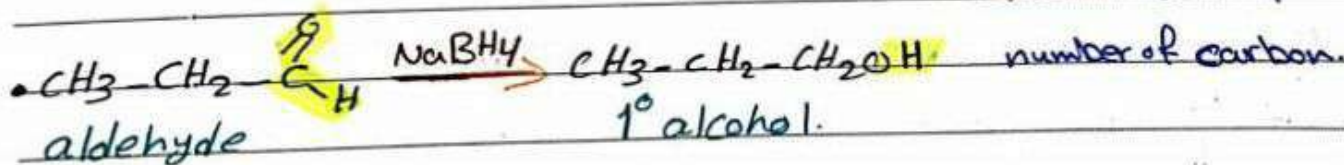 O
• CH3-CH2-C-H NaBH4 → CH3-CH2-CH2OH number of carbon.
aldehyde 1° alcohol.